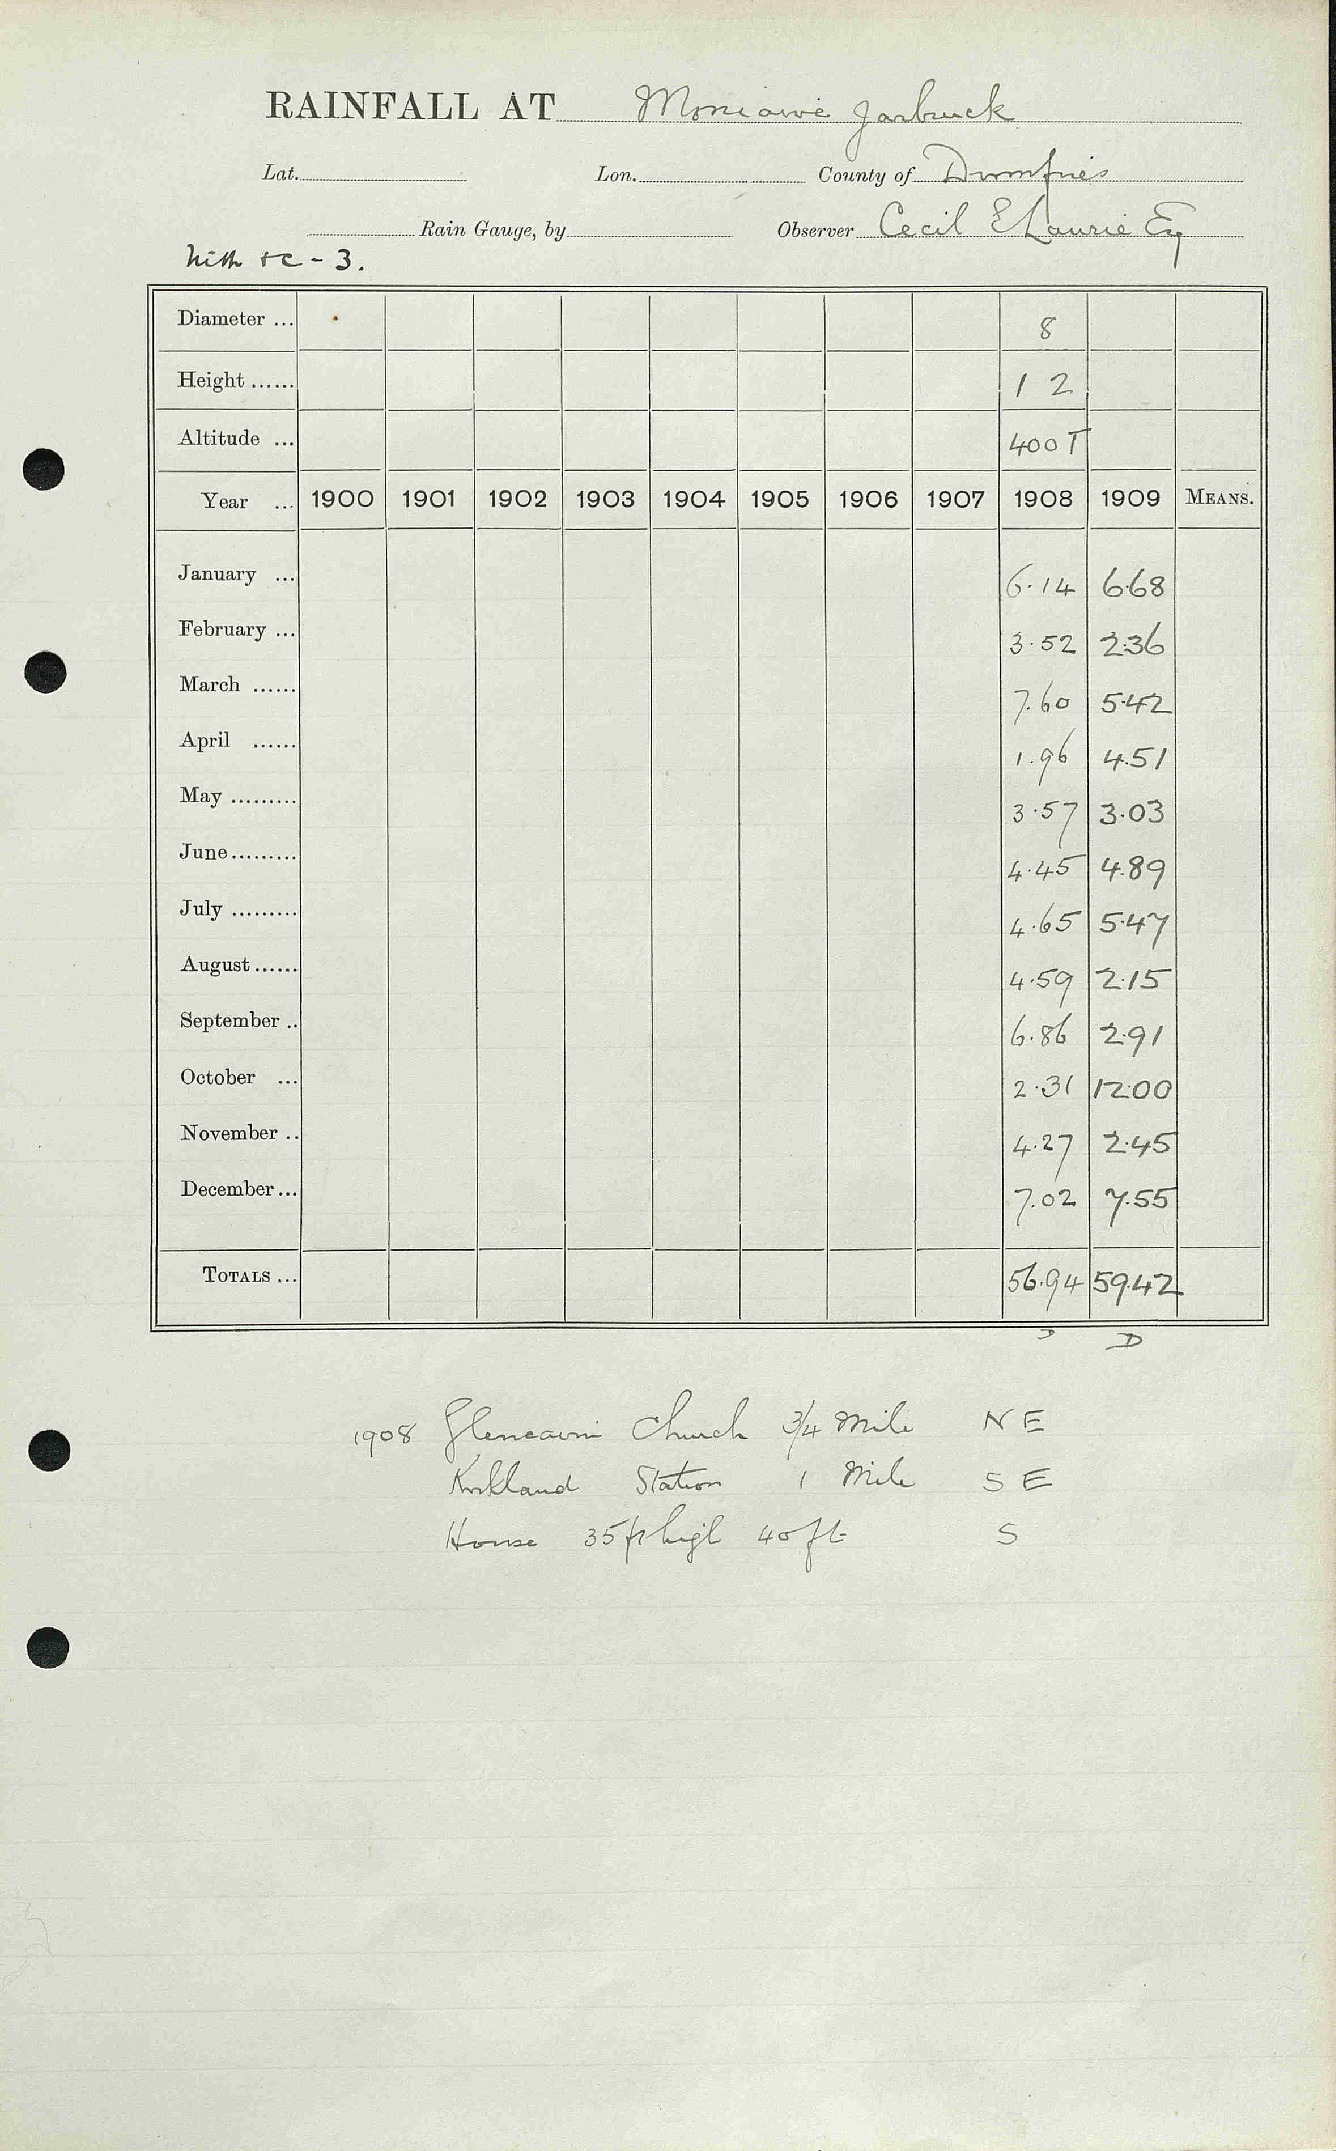 RAINFALL AT Moniaive Jarbruck
Lat. Lon. County of Dumfries
Rain Gauge, by Observer Cecil E Laurie Esq
Nith &c - 3.
Diameter ... 8
Height ...... 1 2
Altitude ... 400 T
Year ... 1900 1901 1902 1903 1904 1905 1906 1907 1908 1909 MEANS.
January ... 6.14 6.68
February ... 3.52 2.36
March ...... 7.60 5.42
April ...... 1.96 4.51
May ......... 3.57 3.03
June ......... 4.45 4.89
July ......... 4.65 5.47
August ...... 4.59 2.15
September .. 6.86 2.91
October ... 2.31 12.00
November .. 4.27 2.45
December ... 7.02 7.55
TOTALS ... 56.94 59.42
D D
1908 Glencairn Church 3/4 Mile N E
Kirkland Station 1 Mile S E
House 35 ft high 40 ft S